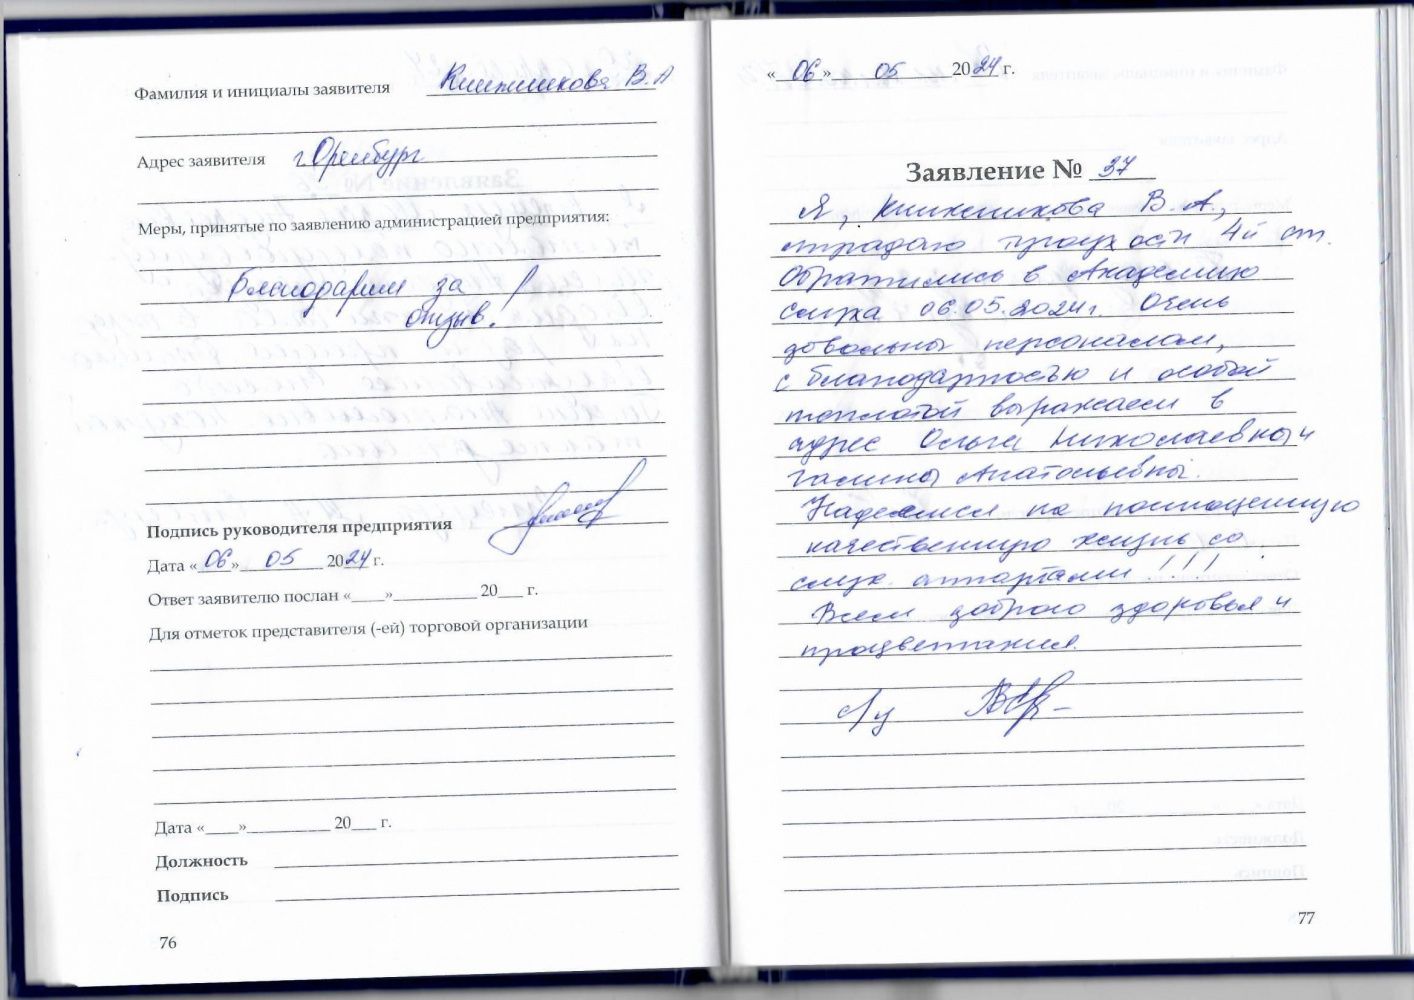 Фамилия и инициалы заявителя В.А
Адрес заявителя г.Оренбург
Меры, принятые по заявлению администрацией предприятия:
Благодарим за
отзыв!
Подпись руководителя предприятия
Дата «06» 05 2024 г.
Ответ заявителю послан «____»__________ 20___ г.
Для отметок представителя (-ей) торговой организации
Дата «____»__________ 20___ г.
Должность
Подпись
76
«06» 05 2024 г.
Заявление № 37
Я, В.А.,
страдаю тугоухости 4й ст.
Обратились в Академию
слуха 06.05.2024г. Очень
довольны персоналом,
с благодарностью и особой
теплотой выражаем в
адрес Ольги Николаевны и
Галины Анатольевны.
Надеемся на полноценную
качественную жизнь со
слух. аппаратами !!!
Всем доброго здоровья и
процветания.
77